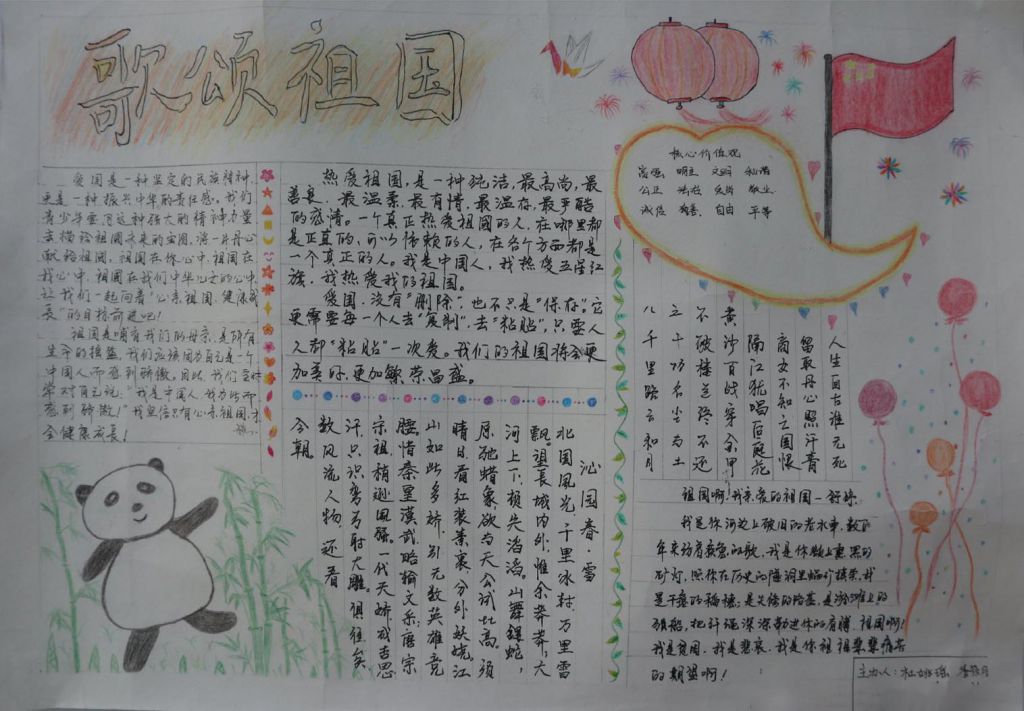 歌颂祖国
爱国是一种坚定的民族精神,
更是一种振兴中华的责任感。我们
青少年要用这种强大的精神力量
去描绘祖国未来的宏图,将一片丹心
献给祖国,祖国在你心中,祖国在
我心中,祖国在我们中华儿女的心中
让我们一起向着“心系祖国,健康成
长”的目标前进吧!
祖国是哺育我们的母亲,是所有
生命的摇篮,我们应该因为自己是一个
中国人而感到骄傲。因此,我们会时
常对自己说:“我是中国人,我为此而
感到骄傲!”我坚信只有心系祖国,才
会健康成长!
热爱祖国,是一种纯洁,最高尚,最
善良,最温柔,最有情,最温存,最严酷
的感情。一个真正热爱祖國的人,在哪里都
是正真的,可以信赖的人,在各个方面都是
一个真正的人。我是中国人,我热爱五星红
旗,我热爱我的祖国。
爱国,没有“删除”,也不只是“保存”。它
更需要每一个人去“复制”,去“粘贴”,只要人
人都“粘贴”一次爱。我们的祖国将会更
加美好,更加繁荣昌盛。
核心价值观
富强 明主 文明 和谐
公正 法治 爱岗 敬业
诚信 友善 自由 平等
人生自古谁无死
留取丹心照汗青
商女不知亡国恨
隔江犹唱后庭花
黄沙百战穿金甲
不破楼兰终不还
三十功名尘与土
八千里路云和月
沁园春·雪
北国风光千里冰封,万里雪
飘。望長城内外,惟余莽莽,大
河上下,顿失滔滔。山舞银蛇,
原驰蜡象,欲与天公试比高。须
晴日,看红装素裹,分外妖娆,江
山如此多娇,引无数英雄竞
腰,惜秦皇漢武,略输文采;唐宗
宋祖,稍逊風骚。一代天骄,成吉思
汗,只识弯弓射大雕。俱往矣,
数风流人物,还看
今朝。
祖国啊!我亲爱的祖国—舒婷
我是你河边上破旧的老水車,数百
年来纺着疲惫的歌,我是你额上熏黑的
矿灯,照你在历史的隧洞里蜗行摸索,我
是干瘪的稻穗;是失修的路基,是淤滩上的
驳船,把纤绳深深勒进你的肩膊,祖国啊!
我是贫困,我是悲哀,我是你祖祖辈辈痛苦
的期望啊!
主办人: